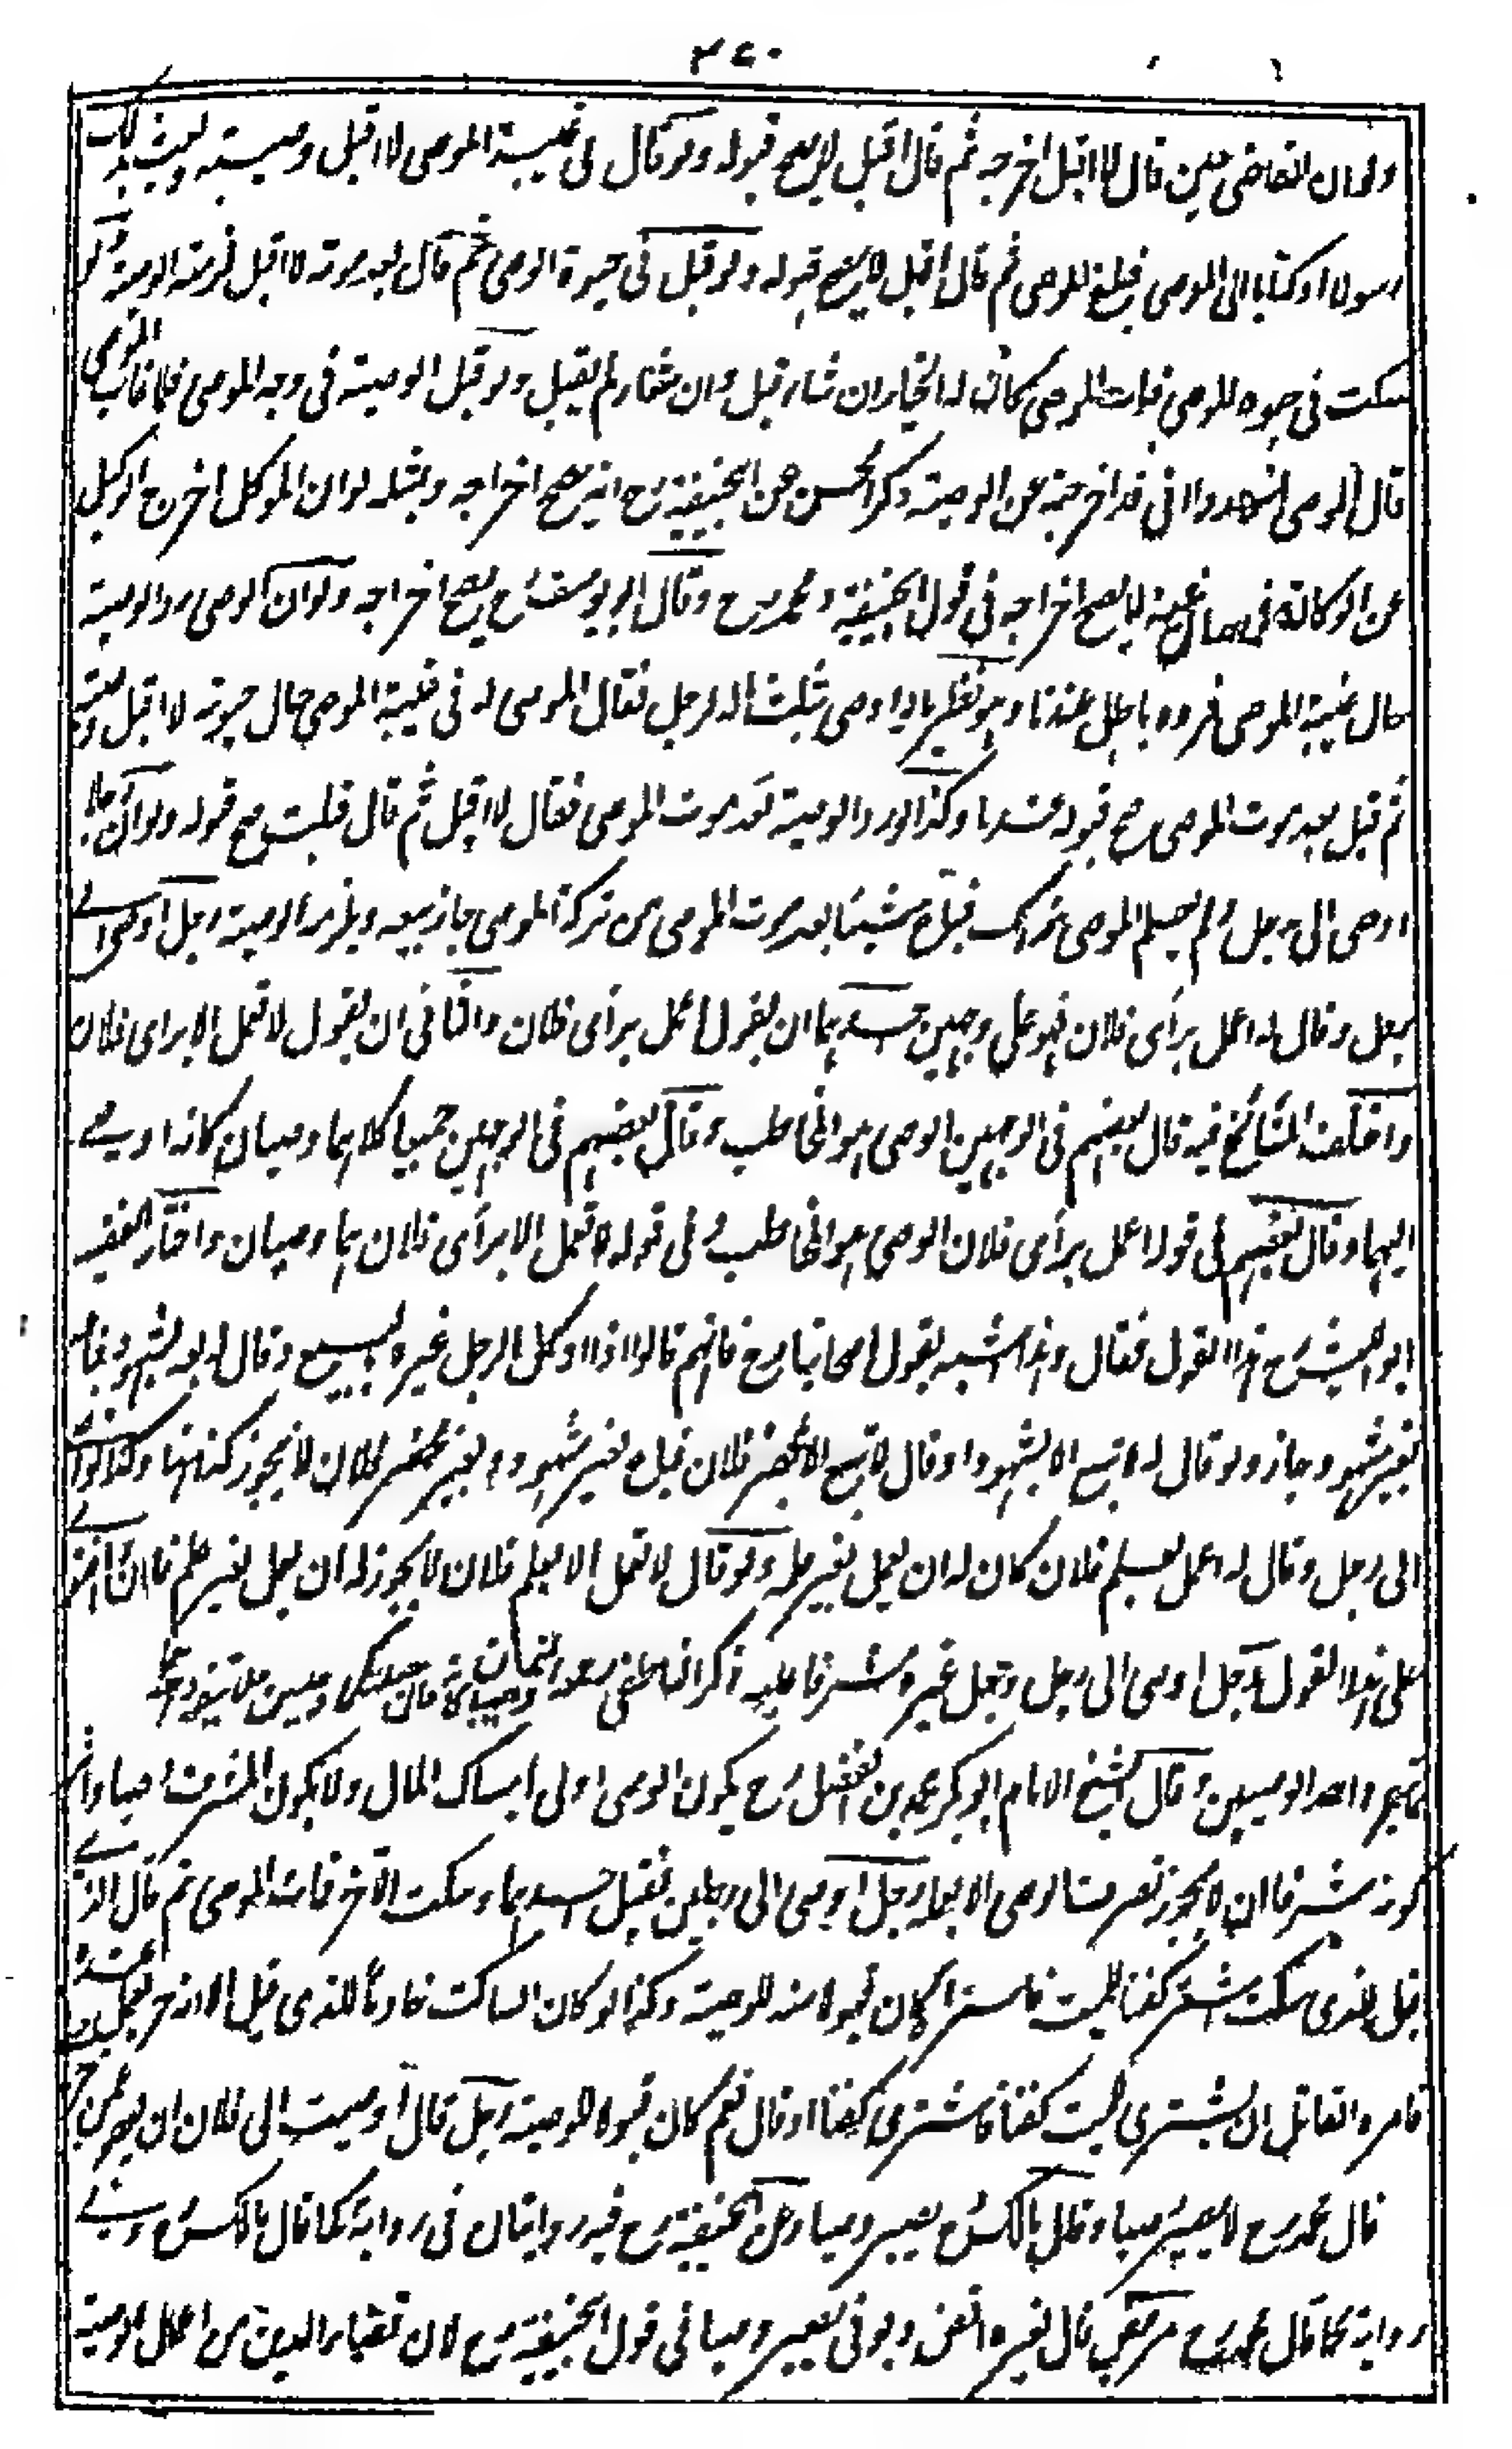 ٣٤٠
ولو ان القاضى حين قال لا اقبل اخرجه ثم قال اقبل لا يصح قبوله ولو قال فى غيبة الموصى لا اقبل وصيته وبعث بذلك
رسولا او كتابا الى الموصى فبلغ الموصى ثم قال اقبل لا يصح قبوله ولو قبل فى حيوة الموصى ثم قال بعد موته لا اقبل لزمته الوصية ولو
سكت فى حيوة الموصى فمات الموصى كان له الخيار ان شاء قبل وان شاء لم يقبل ولو قبل الوصية فى وجه الموصى فلما غاب الموصى
قال الموصى اشهدوا انى قد اخرجته عن الوصية ذكر الحسن عن ابيحنيفة رح انه يصح اخراجه وبمثله لو ان الموكل اخرج الوكيل
عن الوكالة فى حال غيبته لا يصح اخراجه فى قول ابيحنيفة و محمد رح وقال ابو يوسف رح يصح اخراجه ولو ان الوصى رد الوصية
حال غيبة الموصى فرده باطل عندنا وهو نظير ما لو اوصى بثلث ماله لرجل فقال الموصى له فى غيبة الموصى حال حيوته لا اقبل وصيته
ثم قبل بعد موت الموصى صح قبوله عندنا وكذا لو رد الوصية بعد موت الموصى فقال لا اقبل ثم قال قبلت صح قبوله ولو ان رجلا
اوصى الى رجل ولم يعلم الموصى بذلك فباع شيئا بعد موت الموصى من تركة الموصى جاز بيعه ويلزمه الوصية رجل اوصى الى
رجل وقال له اعمل برأى فلان فهو على وجهين احدهما ان يقول اعمل برأى فلان والثانى ان يقول لا تعمل الا برأى فلان
واختلف المشائخ فيه قال بعضهم فى الوجهين الوصى هو المخاطب وقال بعضهم فى الوجهين جميعا كلاهما وصيان كانه اوصى
اليهما وقال بعضهم فى قوله اعمل برأى فلان الوصى هو المخاطب وفى قوله لا تعمل الا برأى فلان هما وصيان واختار الفقيه
ابو الليث رح هذا القول فقال وهذا اشبه بقول اصحابنا رح فانهم قالوا اذا وكل الرجل غيره بالبيع وقال له بعه بشهود فباع
بغير شهود جاز ولو قال له لا تبع الا بشهود او قال لا تبع الا بمحضر فلان فباع بغير شهود او بغير محضر فلان لا يجوز كذا ههنا وكذا لو اوصى
الى رجل وقال له اعمل بعلم فلان كان له ان يعمل بغير علمه ولو قال لا تعمل الا بعلم فلان لا يجوز له ان يعمل بغير علم فلان
على هذا القول رجل اوصى الى رجل وجعل غيره مشرفا عليه ذكر الناطفى
واحد الوصيين وقال الشيخ الامام ابو بكر محمد بن الفضل رح يكون الوصى اولى بامساك المال ولا يكون المشرف وصيا واثر
كونه مشرفا انه لا يجوز تصرف الوصى الا بعلمه رجل اوصى الى رجلين فقبل احدهما وسكت الآخر فمات الموصى ثم قال الذى
قبل للذى سكت اشتر كفنا للميت فاشترى كان قبولا منه للوصية وكذا لو كان الساكت خادما للذى قبل
فامره القابل ان يشترى للميت كفنا فاشترى كفنا او قال نعم كان قبولا للوصية رجل قال اوصيت الى فلان ان
قال محمد رح لا يصير وصيا وقال مالك رح يصير وصيا وعن ابيحنيفة رح فيه روايتان فى رواية كما قال مالك رح وفى
رواية كما قال محمد رح مريض قال لغيره اقض ديونى يصير وصيا فى قول ابيحنيفة رح لان قضاء الدين من اعمال الوصية